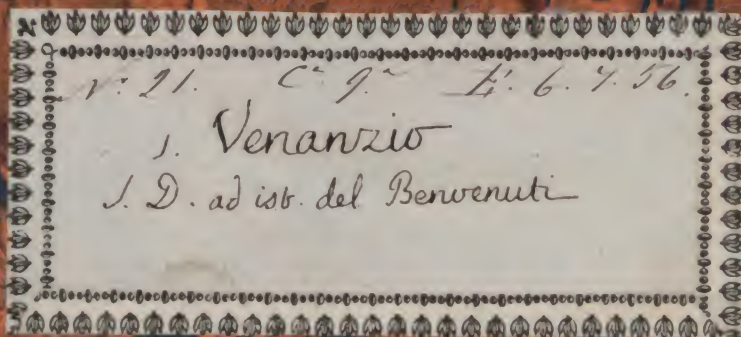 N.º 21. C.ª 9.ª L. 6. 7. 56.
S. Venanzio
S. D. ad ist. del Benvenuti